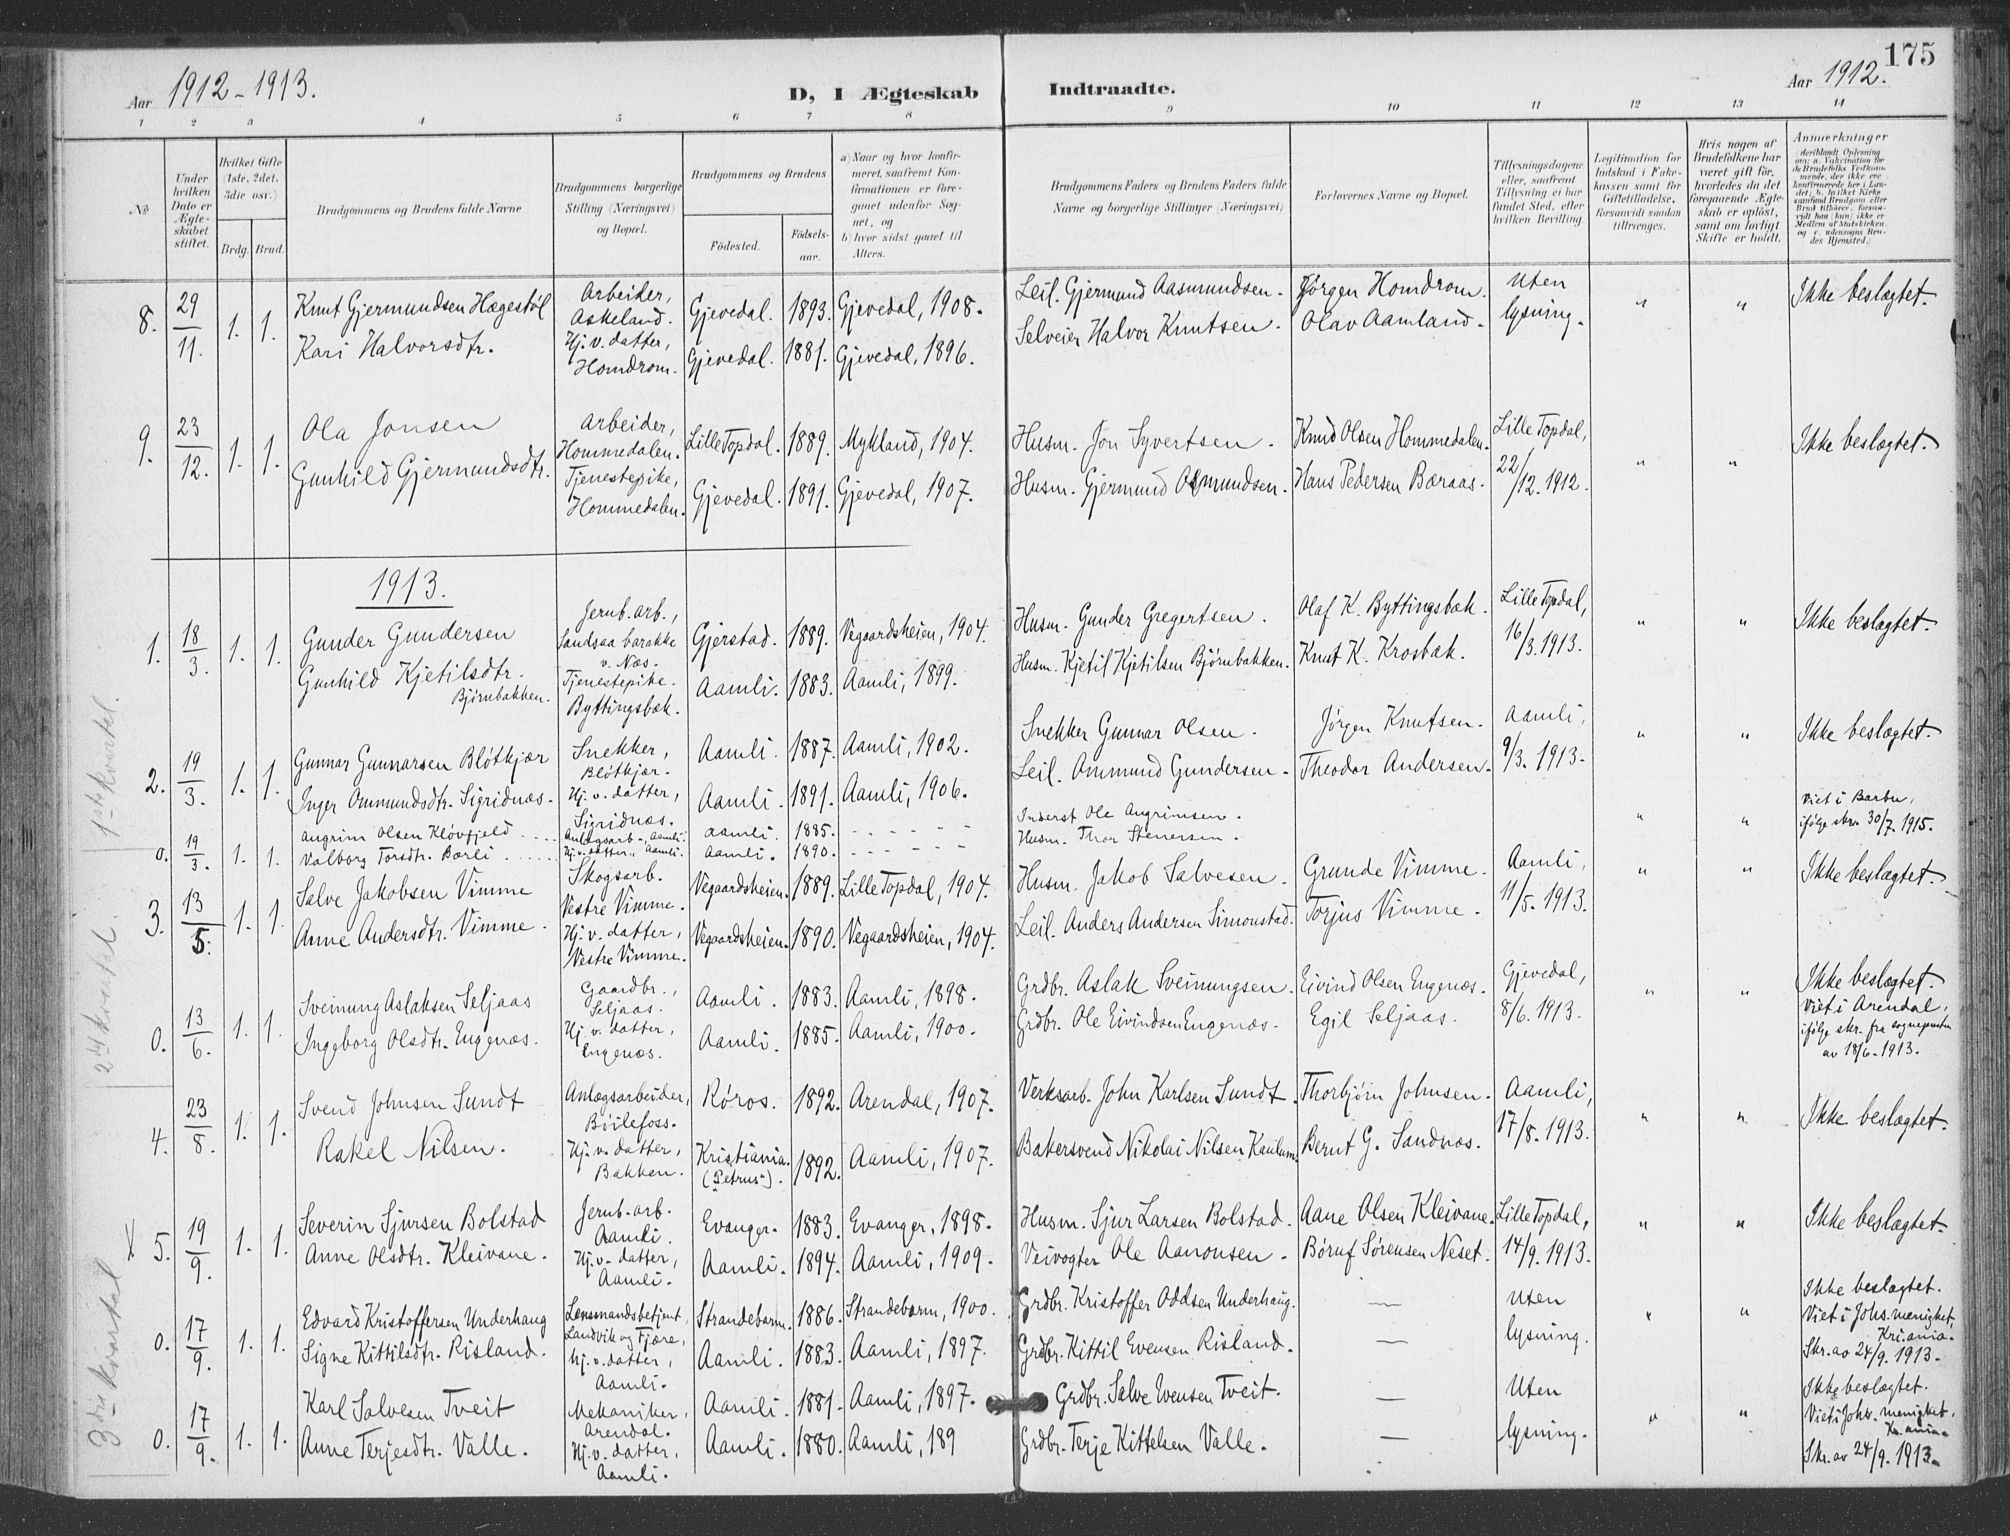 175
Aar 1912-1913.
D, I Ægteskab Indtraadte.
Aar 1912.
1 2 3 4 5 6 7 8 9 10 11 12 13 14
No
Under hvilken Dato er Ægteskabet stiftet.
Hvilket Gifte (1ste, 2det, 3die osv.)
Brdg. Brud.
Brudgommens og Brudens fulde Navne
Brudgommens borgerlige Stilling (Næringsvei) og Bopæl.
Brudgommens og Brudens
Födested. Födselsaar.
a) Naar og hvor konfirmeret, samt Konfirmationen er foregaaet udenfor Sognet, og
b) hvor sidst gaaet til Alters.
Brudgommens Faders og Brudens Faders fulde Navne og borgerlige Stillinger (Næringsvei)
Forlovernes Navne og Bopæl.
Tillysningsdagene eller, samfremt Tillysning ei har fundet Sted, efter hvilken Bevilling.
Legitimation for Indskud i Enkekassen samt for Giftetilladelse, forsaavidt saadan tiltrænges.
Hvis nogen af Brudefolkene har været gift för, hvorledes da det foregaaende Ægteskab er oplöst, samt om lovligt Skifte er holdt.
Anmærkninger
8. 29/11. 1. 1. Knut Gjermundsen Hægestøl Arbeider, Askeland. Gjevedal. 1893. Gjevedal, 1908. Leil. Gjermund Aasmundsen. Jørgen Homdrom. Uten lysning. " " Ikke beslægtet.
Kari Halvorsdtr. Hj. v. datter, Homdrom. Gjevedal. 1881. Gjevedal, 1896. Selveier Halvor Knutsen. Olav Aamland.
9. 23/12. 1. 1. Ola Jonsen Arbeider, Hommedalen. Lille Topdal. 1889. Mykland, 1904. Husm. Jon Syvertsen. Knud Olsen Hommedalen. Lille Topdal, 22/12. 1912. " " Ikke beslægtet.
Gunhild Gjermundsdtr. Tjenestepike, Hommedalen. Gjevedal. 1891. Gjevedal, 1907. Husm. Gjermund Osmundsen. Hans Pedersen Bæraas.
1913.
1ste kvartal.
1. 18/3. 1. 1. Gunder Gundersen Jernb. arb., Sandsaa barakke v. Næs. Gjerstad. 1889. Vegaardsheien, 1904. Husm. Gunder Gregertsen. Olaf K. Byttingsbæk. Lille Topdal, 16/3. 1913. " " Ikke beslægtet.
Gunhild Kjetilsdtr. Bjørnbakken. Tjenestepike. Byttingsbæk. Aamli. 1883. Aamli, 1899. Husm. Kjetil Kjetilsen Bjørnbakken. Knut K. Krosbæk.
2. 19/3. 1. 1. Gunnar Gunnarsen Bløtkjær Snekker, Bløtkjær. Aamli. 1887. Aamli, 1902. Snekker Gunnar Olsen. Jørgen Knutsen. Aamli, 9/3. 1913. " " Ikke beslægtet.
Inger Ommundsdtr. Sigridnæs. Hj. v. datter, Sigridnæs. Aamli. 1891. Aamli, 1906. Leil. Ommund Gundersen. Theodor Andersen.
0. 19/3. 1. 1. Angrim Olsen Kløvfjeld Anlægsarb., Aamli. Aamli. 1885. Inderst Ole Angrimsen. " " Viet i Barbu, ifølge skr. 30/7. 1915.
Valborg Torsdtr. Barli Hj. v. datter, Aamli. Aamli. 1890. Husm. Thor Stenersen.
2det kvartal.
3. 13/5. 1. 1. Salve Jakobsen Vimme Skogsarb. Vestre Vimme. Vegaardsheien. 1889. Lille Topdal, 1904. Husm. Jakob Salvesen. Grunde Vimme. Aamli, 11/5. 1913. " " Ikke beslægtet.
Anne Andersdtr. Vimme. Hj. v. datter, Vestre Vimme. Vegaardsheien. 1890. Vegaardsheien, 1904. Leil. Anders Andersen Simonstad. Torjus Vimme.
0. 13/6. 1. 1. Sveinung Aslaksen Seljaas Gaardbr., Seljaas. Aamli. 1883. Aamli, 1898. Grdbr. Aslak Sveinungsen. Eivind Olsen Engenæs. Gjevedal, 8/6. 1913. " " Ikke beslægtet. Viet i Arendal, ifølge skr. fra sognepresten av 18/6. 1913.
Ingeborg Olsdtr. Engenæs. Hj. v. datter, Engenæs. Aamli. 1885. Aamli, 1900. Grdbr. Ole Eivindsen Engenæs. Egil Seljaas.
3die kvartal
4. 23/8. 1. 1. Svend Johnsen Sundt Anlægsarbeider, Bøilefoss. Røros. 1892. Arendal, 1907. Verksarb. John Karlsen Sundt. Thorbjørn Johnsen. Aamli, 17/8. 1913. " " Ikke beslægtet.
Rakel Nilsen. Hj. v. datter, Bakken. Kristiania. ("Petrus"). 1892. Aamli, 1907. Bakersvend Nikolai Nilsen Kaulum. Bernt G. Sandnæs.
X 5. 19/9. 1. 1. Severin Sjursen Bolstad Jernb. arb. Aamli. Evanger. 1883. Evanger, 1898. Husm. Sjur Larsen Bolstad. Aane Olsen Kleivane. Lille Topdal, 14/9. 1913. " " Ikke beslægtet.
Anne Olsdtr. Kleivane. Hj. v. datter, Aamli. Aamli. 1894. Aamli, 1909. Veivogter Ole Aanonsen. Børuf Sørensen Neset.
0. 17/9. 1. 1. Edvard Kristoffersen Underhaug Lensmandsbetjent, Landvik og Fjære, Strandebarm. 1886. Strandebarm, 1900. Grdbr. Kristoffer Oddsen Underhaug. — Uten lysning. " " Ikke beslægtet. Viet i Johs. menighet, Kri.ania. Skr. av 24/9. 1913.
Signe Kittilsdtr. Risland. Hj. v. datter, Aamli. Aamli. 1883. Aamli, 1897. Grdbr. Kittil Evensen Risland. —
0. 17/9. 1. 1. Karl Salvesen Tveit Mekaniker, Arendal. Aamli. 1881. Aamli, 1897. Grdbr. Salve Evensen Tveit. — Uten lysning. " " Ikke beslægtet. Viet i Johs. menighet, Kr.ania. Skr. av 24/9. 1913.
Anne Terjesdtr. Valle. Hj. v. datter, Aamli. Aamli. 1880. Aamli, 189 Grdbr. Terje Kittelsen Valle. —